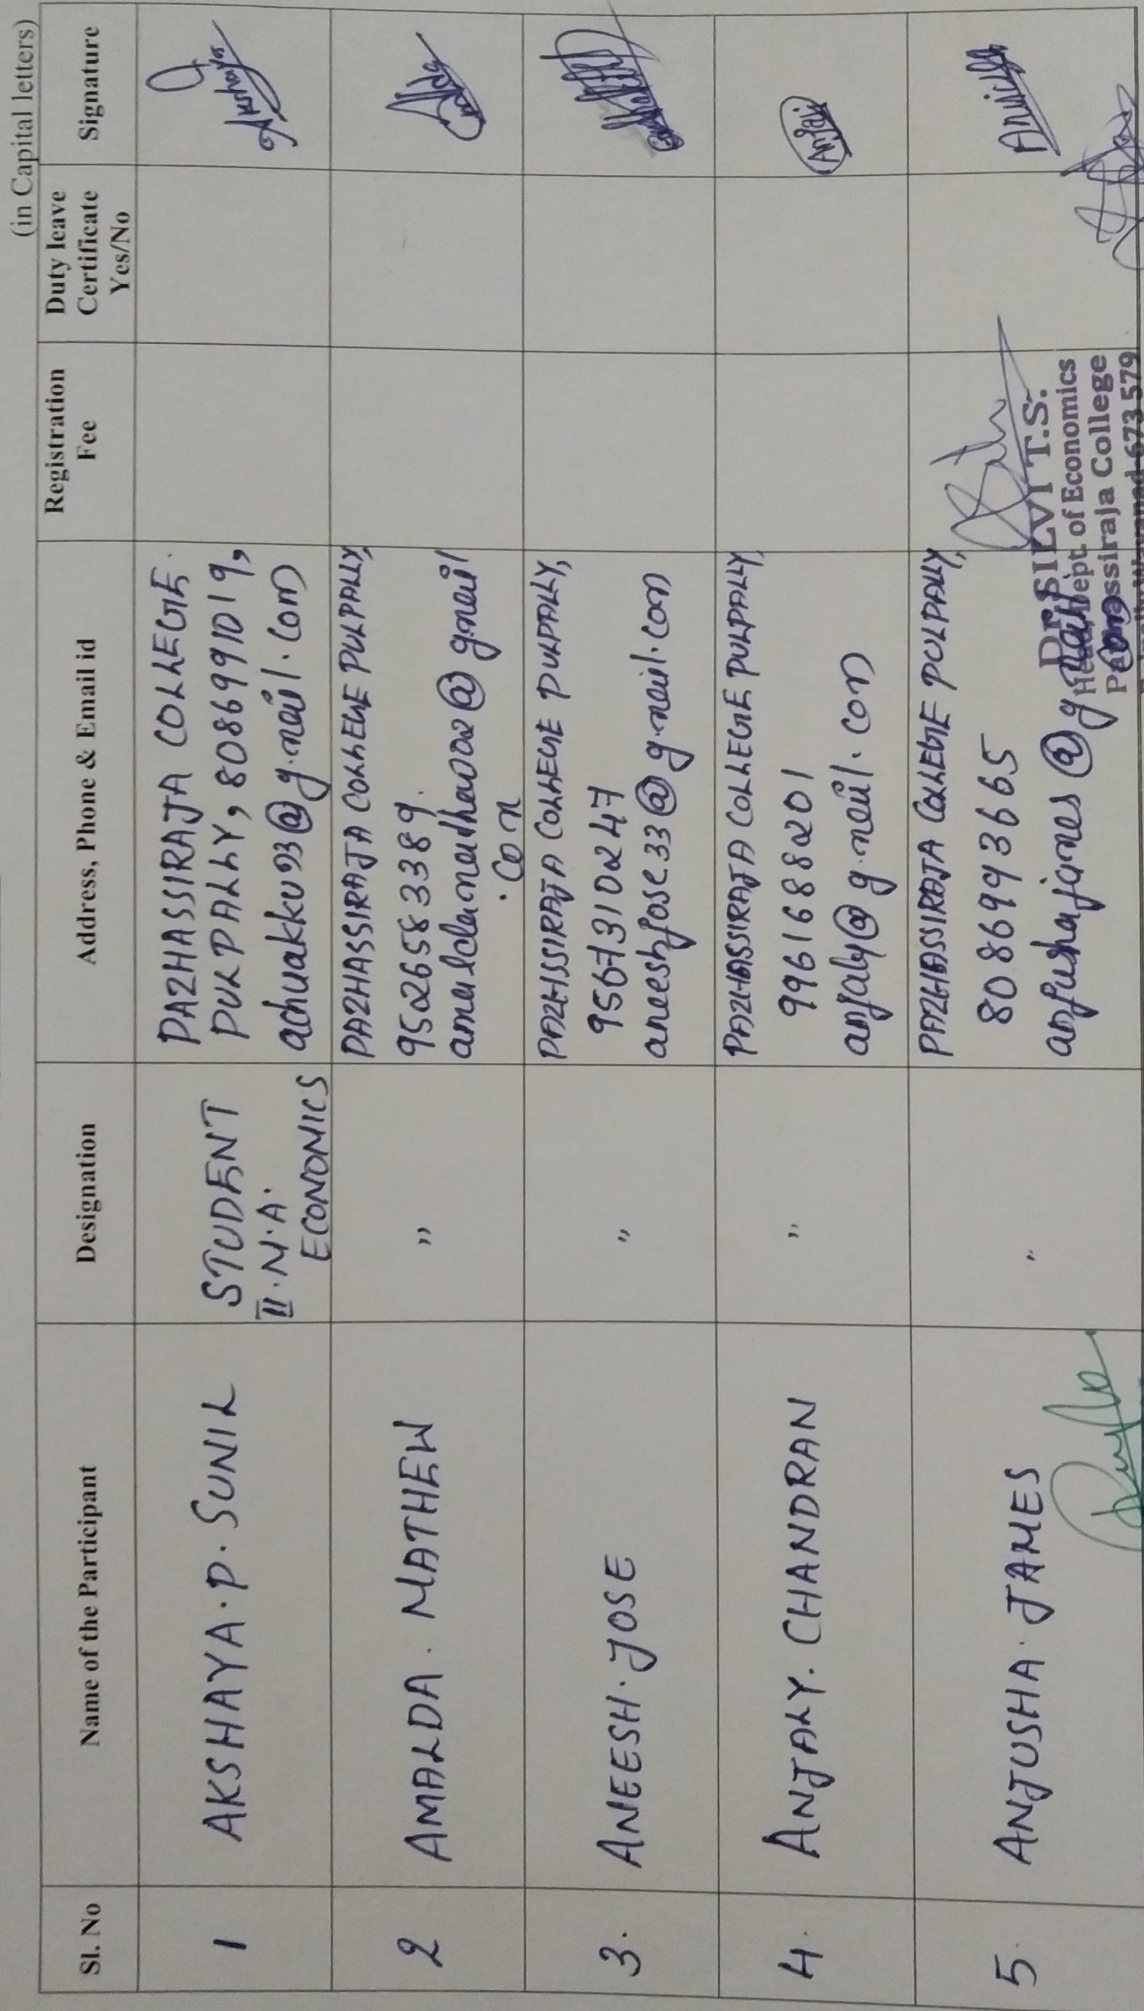 (in Capital letters)
Sl. No
Name of the Participant
Designation
Address, Phone & Email id
Registration
Fee
Duty leave
Certificate
Yes/No
Signature
1
AKSHAYA.P.SUNIL
STUDENT
II.M.A.
ECONOMICS
PAZHASSIRAJA COLLEGE
PULPALLY, 8086991019,
achuakku93@gmail.com
Akshaya
2
AMALDA. MATHEW
"
PAZHASSIRAJA COLLEGE PULPALLY,
9526583389.
@gmail
.com
3.
ANEESH. JOSE
"
PAZHASSIRAJA COLLEGE PULPALLY,
9567310247
aneeshjose33@gmail.com
4.
ANJALY. CHANDRAN
"
PAZHASSIRAJA COLLEGE PULPALLY,
9961688201
anjaly@gmail.com
5.
ANJUSHA. JAMES
"
PAZHASSIRAJA COLLEGE PULPALLY,
8086993665
anjushajames@gmail
.com
Dr.SILVI T.S.
Head, Dept. of Economics
Pazhassiraja College
673 579